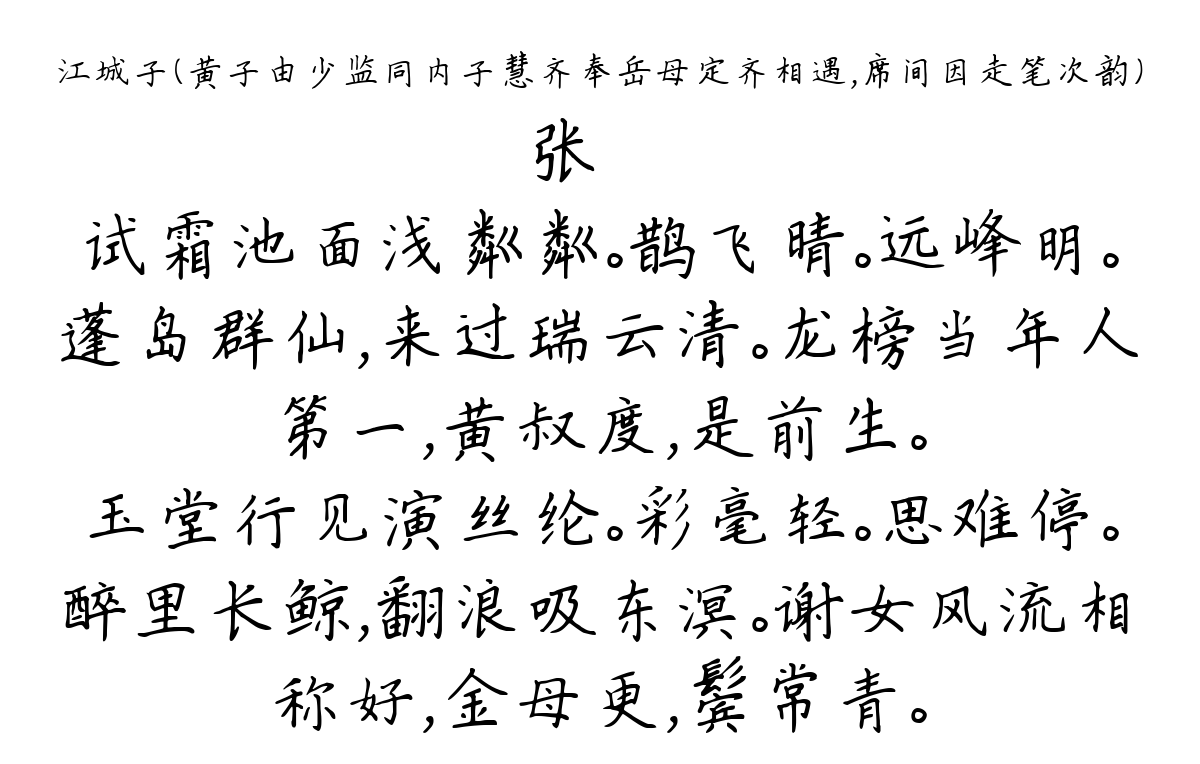 江城子(黄子由少监同内子慧齐奉岳母定齐相遇,席间因走笔次韵)
张
试霜池面浅粼粼。鹊飞晴。远峰明。
蓬岛群仙,来过瑞云清。龙榜当年人
第一,黄叔度,是前生。
玉堂行见演丝纶。彩毫轻。思难停。
醉里长鲸,翻浪吸东溟。谢女风流相
称好,金母更,鬓常青。